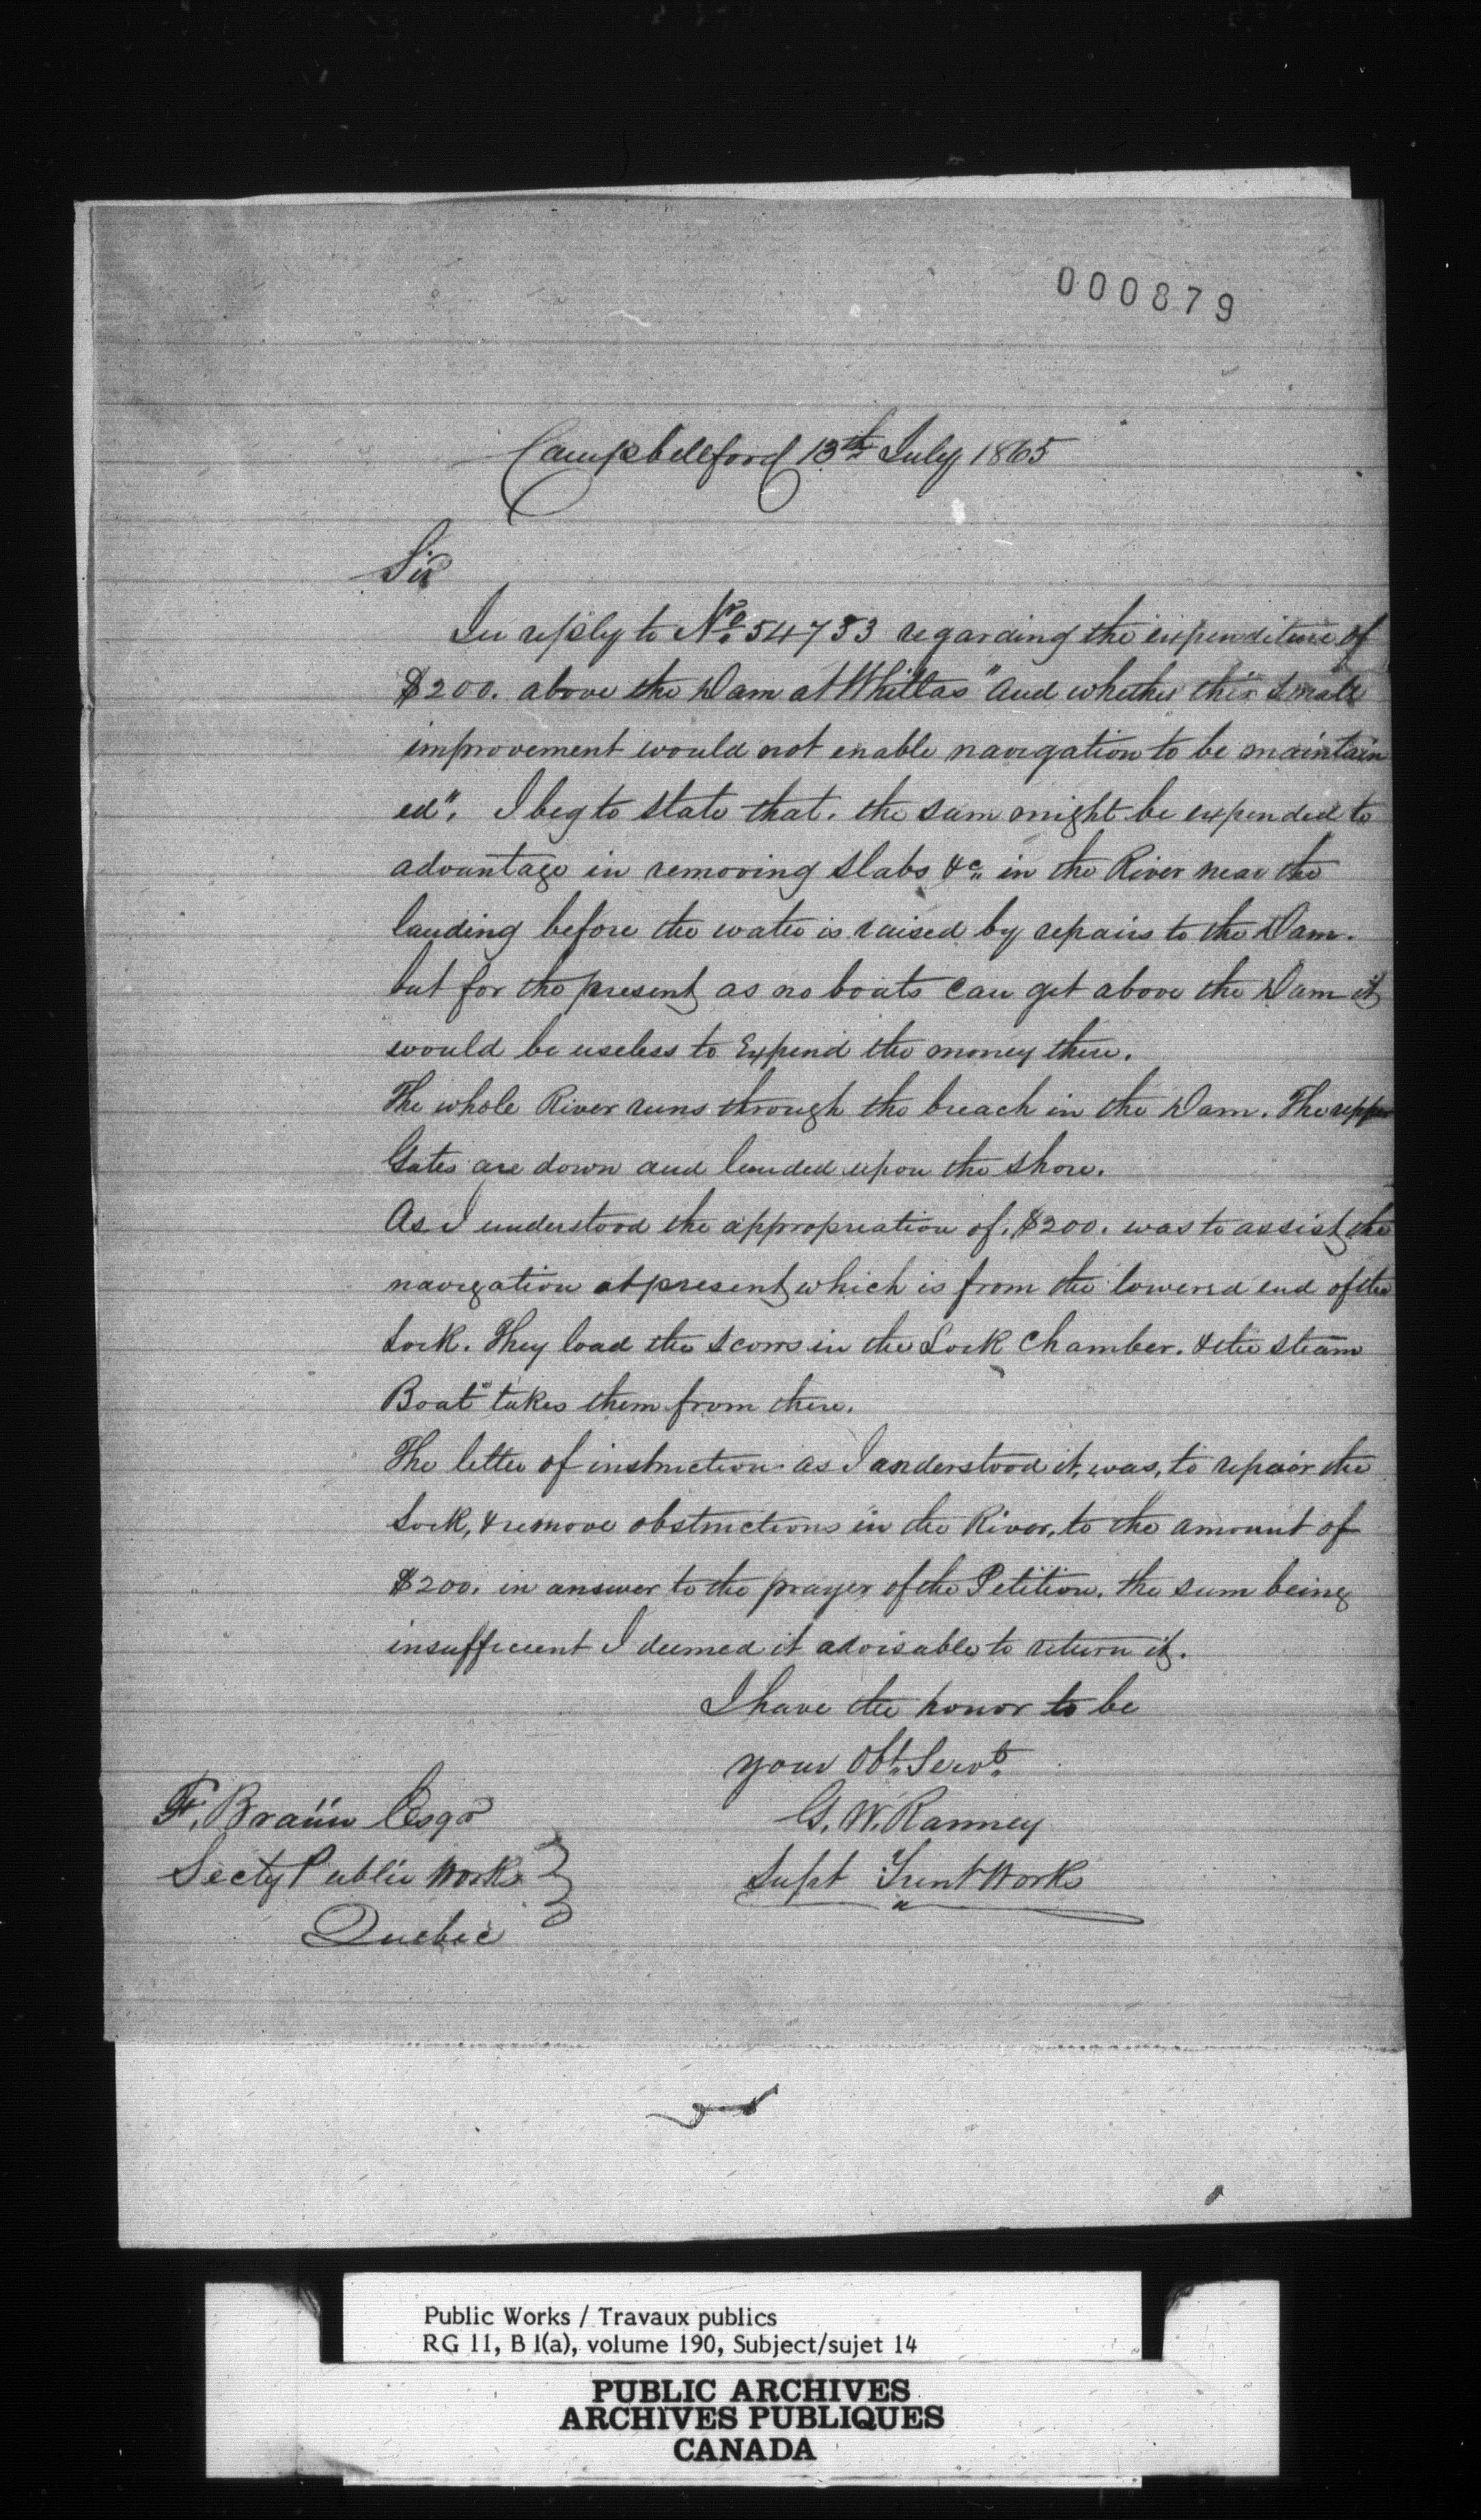 000879
Campbellford 13th July 1865
Sir
In reply to No. 54753 regarding the expenditure of
$200. above the Dam at Whitlas "and whether this small
improvement would not enable navigation to be maintain
ed". I beg to state that. the sum might be expended to
advantage in removing slabs &c. in the River near the
landing before the water is raised by repairs to the Dam.
but for the present as no boats can get above the Dam it
would be useless to Expend the money there.
The whole River runs through the breach in the Dam. The upper
Gates are down and landed upon the shore.
As I understood the appropriation of. $200. was to assist the
navigation at present which is from the lowered end of the
Lock. They load the scows in the Lock Chamber. & the steam
Boat takes them from there.
The letter of instruction as I understood it, was, to repair the
Lock, & remove obstructions in the River, to the amount of
$200. in answer to the prayer of the Petition. the sum being
insufficient I deemed it advisable to return it.
I have the honor to be
your Obt. Servt.
G. W. Ranney
Supt Trent Works
F. Braün Esqr
Secty Public Works
Quebec
Public Works / Travaux publics
RG 11, B 1(a), volume 190, Subject/sujet 14
PUBLIC ARCHIVES
ARCHIVES PUBLIQUES
CANADA